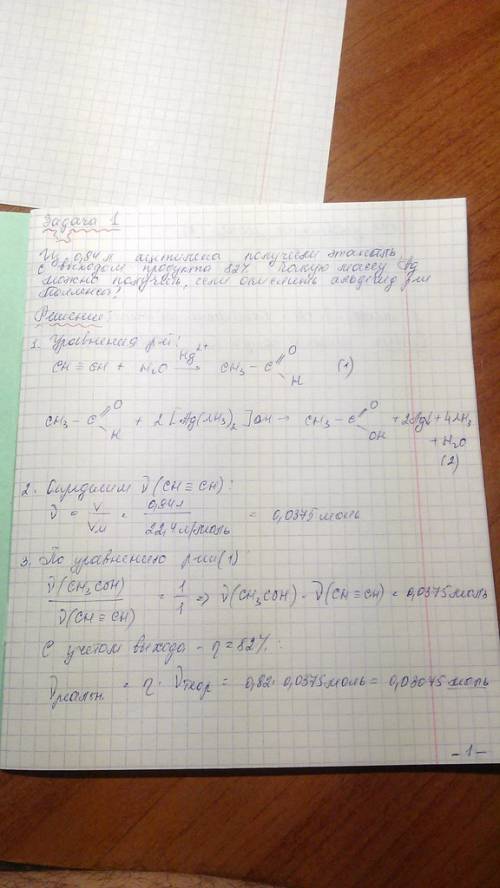 Задача 1
Из 0,84 л ацетилена получили этаналь
с выходом продукта 82%. Какую массу Ag
можно получить, если окислить альдегид
Решение:
1. Уравнения р-й:
CH ≡ CH + H₂O →(Hg²⁺) CH₃ – C(=O)H (1)
CH₃ – C(=O)H + 2[Ag(NH₃)₂]OH → CH₃ – C(=O)OH + 2Ag↓ + 4NH₃
+ H₂O
(2)
2. Определим ν(CH ≡ CH):
ν = V/Vм = 0,84л/22,4 л/моль = 0,0375 моль
3. По уравнению р-ии(1):
ν(CH₃COH)/ν(CH ≡ CH) = 1/1 ⇒ ν(CH₃COH) = ν(CH ≡ CH) = 0,0375 моль
С учетом выхода – η = 82%:
νреальн. = η · νтеор = 0,82 · 0,0375 моль = 0,03075 моль
- 1 -